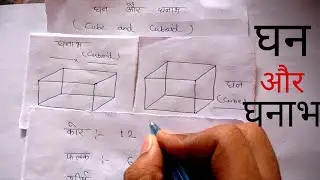 घन और घनाभ
(Cube and Cuboid)
घनाभ
(Cuboid)
घन
(Cube)
कोर :- 12
फलक :- 6
शीर्ष
घन
और
घनाभ